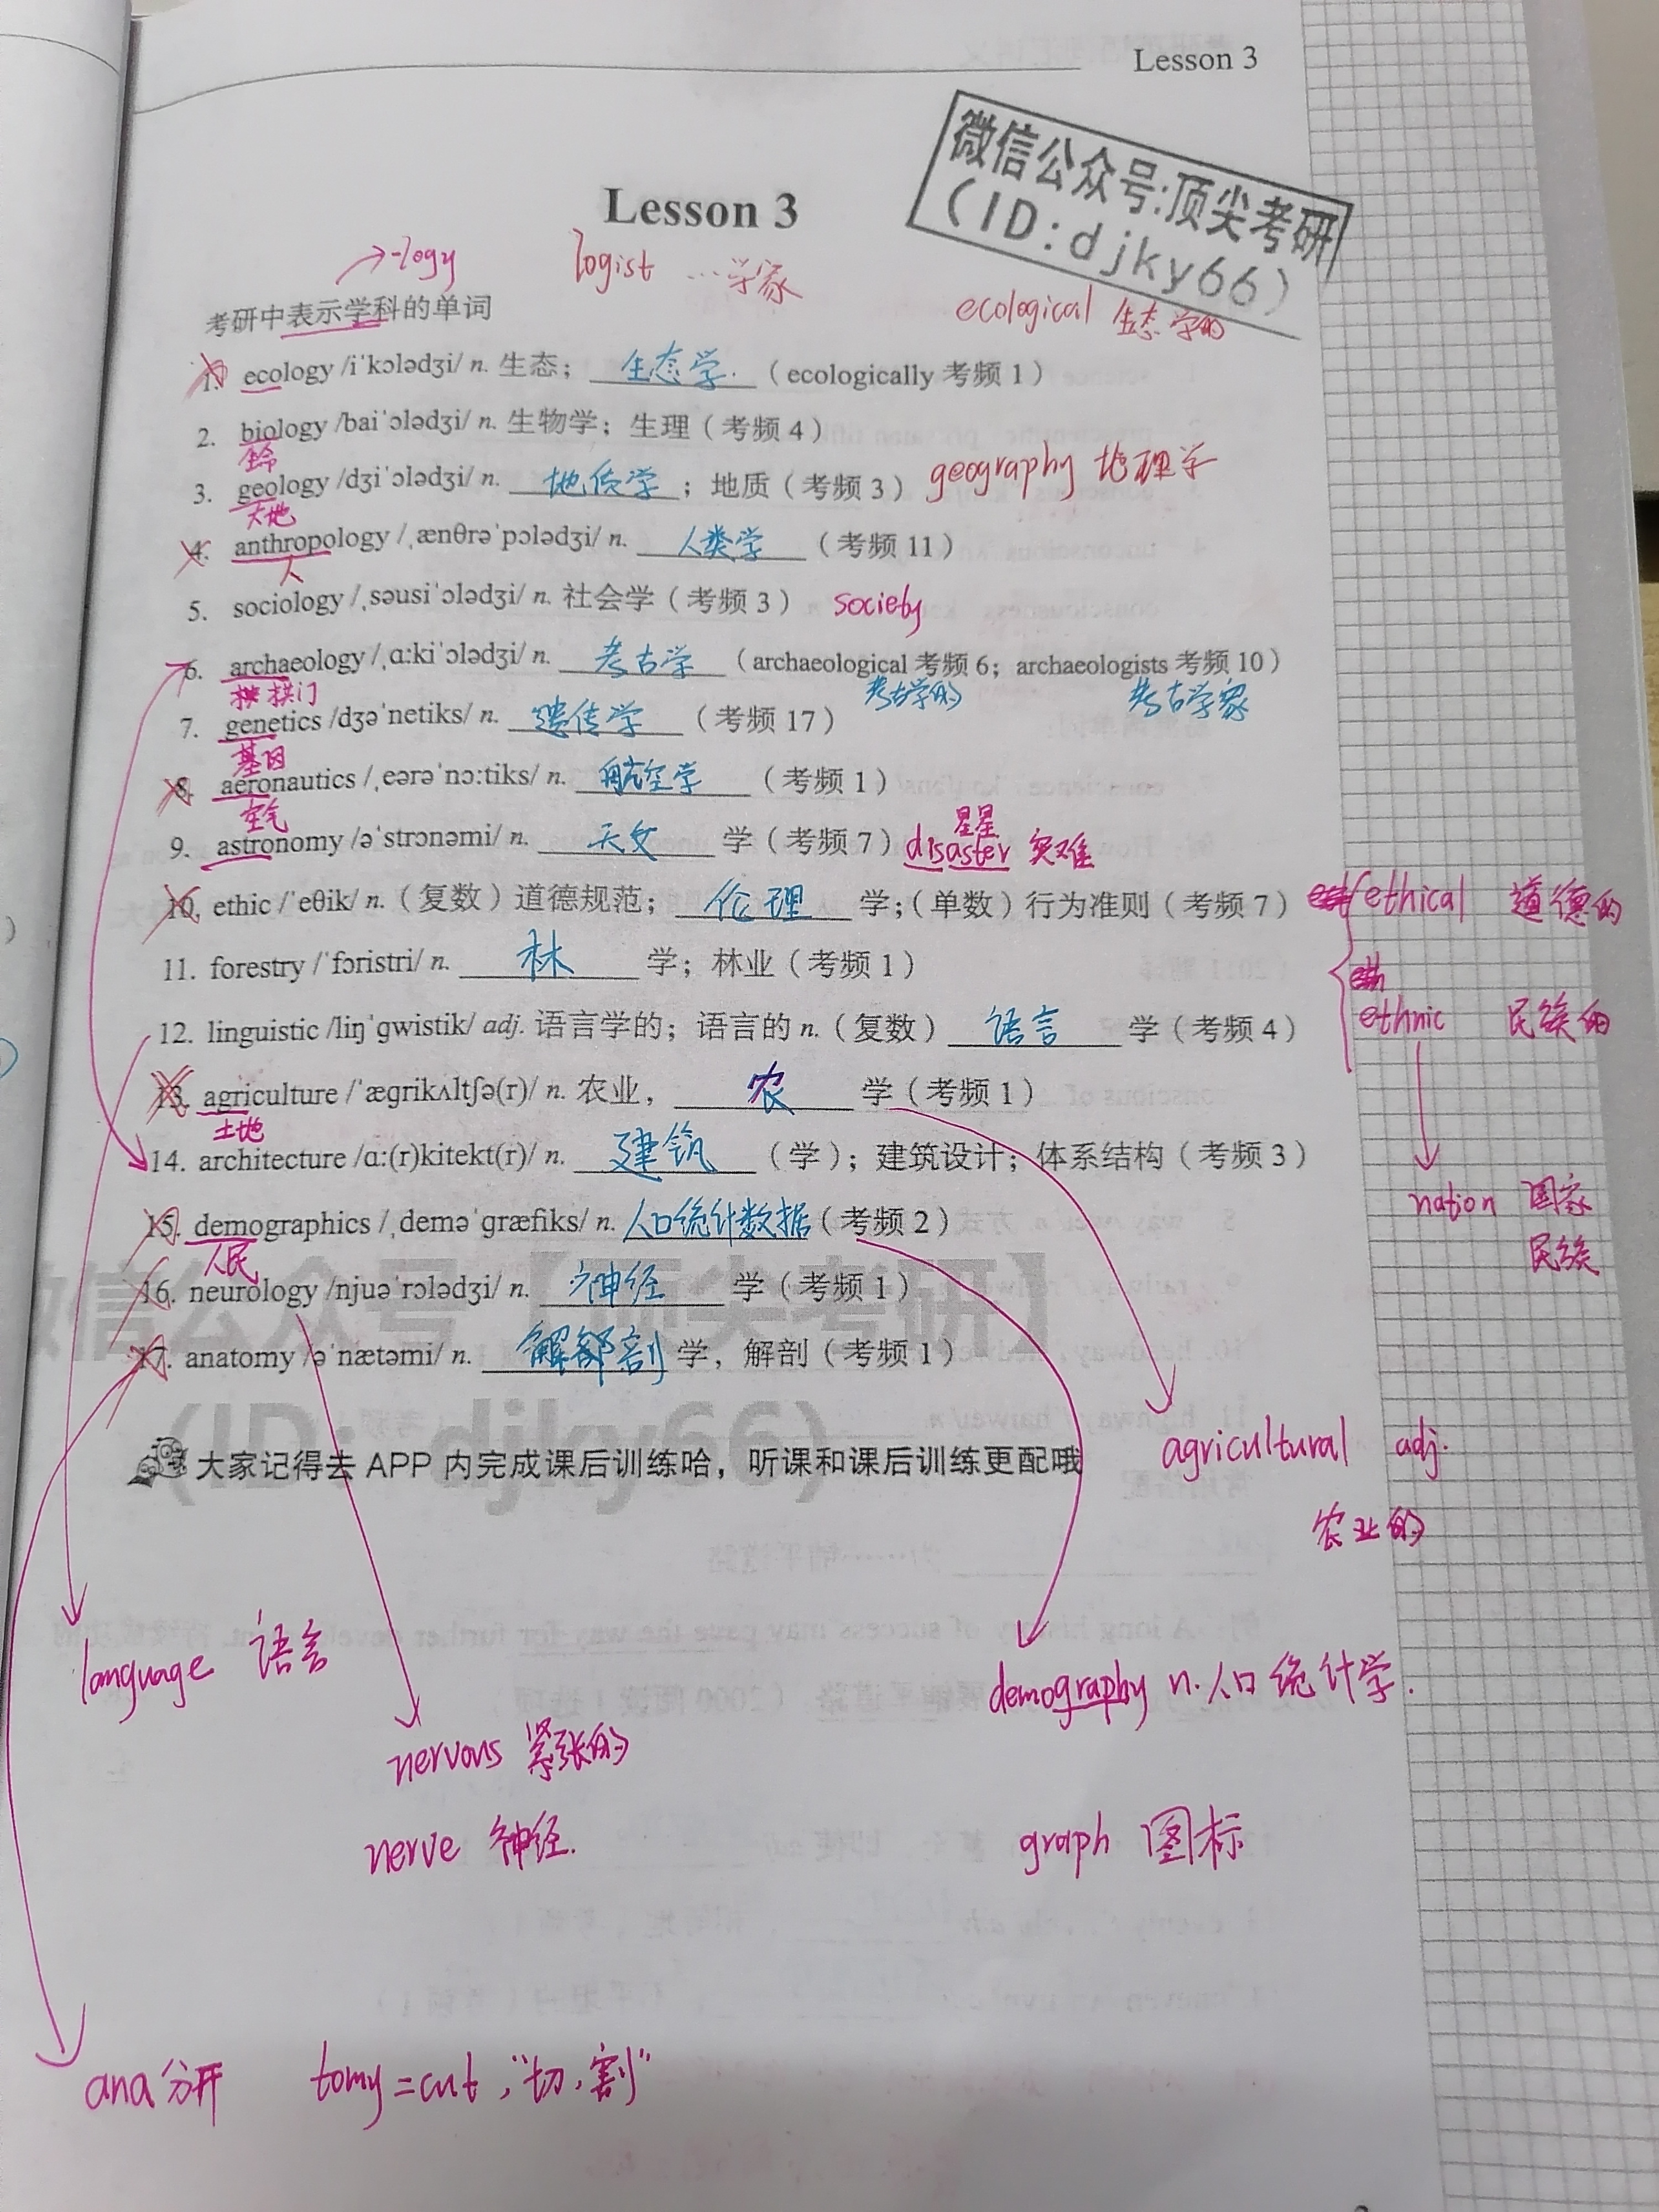 Lesson 3
微信公众号:顶尖考研
(ID:djky66)
Lesson 3
-logy logist …学家
ecological 生态学的
考研中表示学科的单词
1. ecology /iˈkɔlədʒi/ n. 生态；生态学.（ecologically 考频 1）
2. biology /baiˈɔlədʒi/ n. 生物学；生理（考频 4）
生命
3. geology /dʒiˈɔlədʒi/ n. 地质学；地质（考频 3） geography 地理学
大地
4. anthropology /ˌænθrəˈpɔlədʒi/ n. 人类学（考频 11）
人
5. sociology /ˌsəusiˈɔlədʒi/ n. 社会学（考频 3） society
6. archaeology /ˌɑ:kiˈɔlədʒi/ n. 考古学（archaeological 考频 6；archaeologists 考频 10）
拱门 考古学的 考古学家
7. genetics /dʒəˈnetiks/ n. 遗传学（考频 17）
基因
8. aeronautics /ˌeərəˈnɔ:tiks/ n. 航空学（考频 1）
空气 星星
9. astronomy /əˈstrɔnəmi/ n. 天文学（考频 7） disaster 灾难
10. ethic /ˈeθik/ n.（复数）道德规范；伦理学；（单数）行为准则（考频 7） ethical 道德的
11. forestry /ˈfɔristri/ n. 林学；林业（考频 1）
12. linguistic /liŋˈgwistik/ adj. 语言学的；语言的 n.（复数）语言学（考频 4） ethnic 民族的
13. agriculture /ˈægrikʌltʃə(r)/ n. 农业，农学（考频 1）
土地
14. architecture /ɑ:(r)kitekt(r)/ n. 建筑（学）；建筑设计；体系结构（考频 3）
nation 国家
民族
15. demographics /ˌdeməˈgræfiks/ n. 人口统计数据（考频 2）
人民
16. neurology /njuəˈrɔlədʒi/ n. 神经学（考频 1）
微信公众号【顶尖考研】
17. anatomy /əˈnætəmi/ n. 解剖学，解剖（考频 1）
(ID: djky66)
agricultural adj.
农业的
大家记得去 APP 内完成课后训练哈，听课和课后训练更配哦
language 语言
demography n.人口统计学.
nervous 紧张的
nerve 神经.
graph 图标
ana 分开 tomy=cut,"切,割"